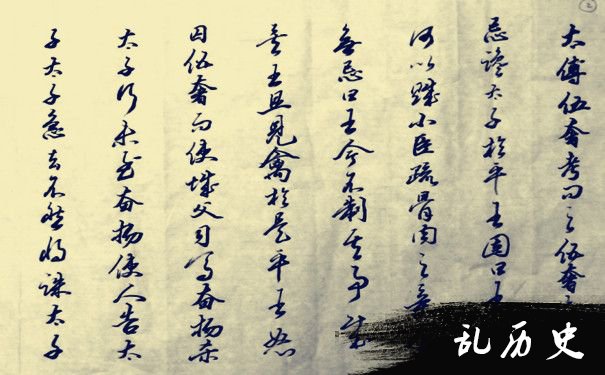 2
太傅伍奢考问之伍奢
忌谗太子於平王因曰王
何以賊小臣疏骨肉之
無忌曰王今不制其事成
矣王且見禽於是平王怒
囚伍奢而使城父司马奮揚杀
太子行未至奮揚使人告太
子太子急去不然将誅太子
乱历史